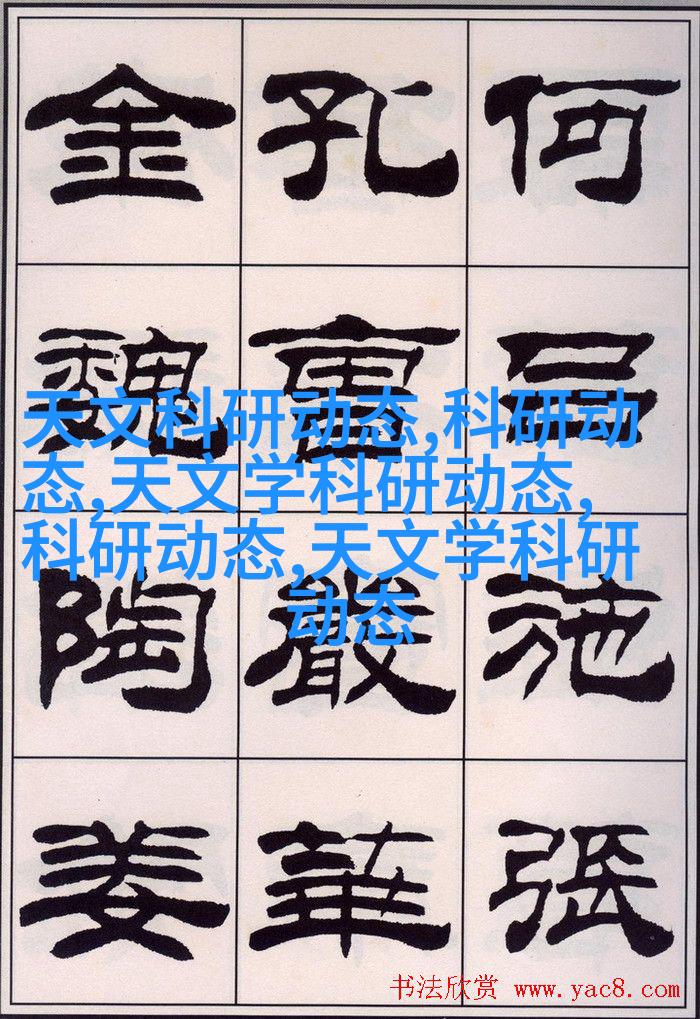 何呂施張
孔曹嚴華
金魏陶姜
天文科研动态,科研动
态,天文学科研动态,
科研动态,天文学科研
动态
书法欣赏 www.yac8.com